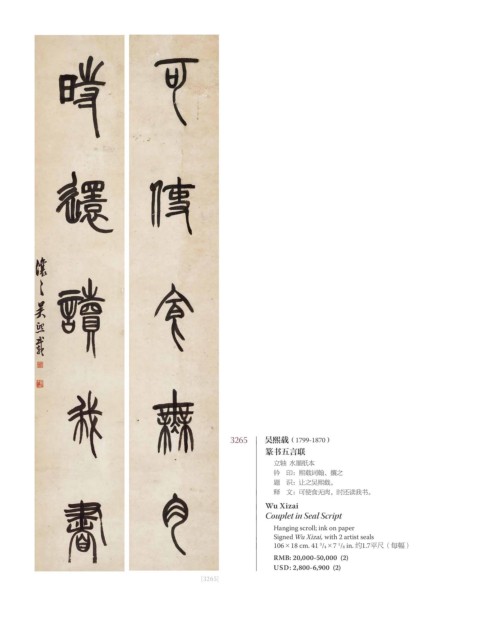 可使食無肉
時還讀我書
讓之吳熙載
3265
吴熙载（1799-1870）
篆书五言联
立轴 水墨纸本
钤 印：熙载词翰、攘之
题 识：让之吴熙载。
释 文：可使食无肉，时还读我书。
Wu Xizai
Couplet in Seal Script
Hanging scroll; ink on paper
Signed Wu Xizai, with 2 artist seals
106 × 18 cm. 41 3/4 × 7 1/8 in. 约1.7平尺（每幅）
RMB: 20,000-50,000 (2)
USD: 2,800-6,900 (2)
[3265]